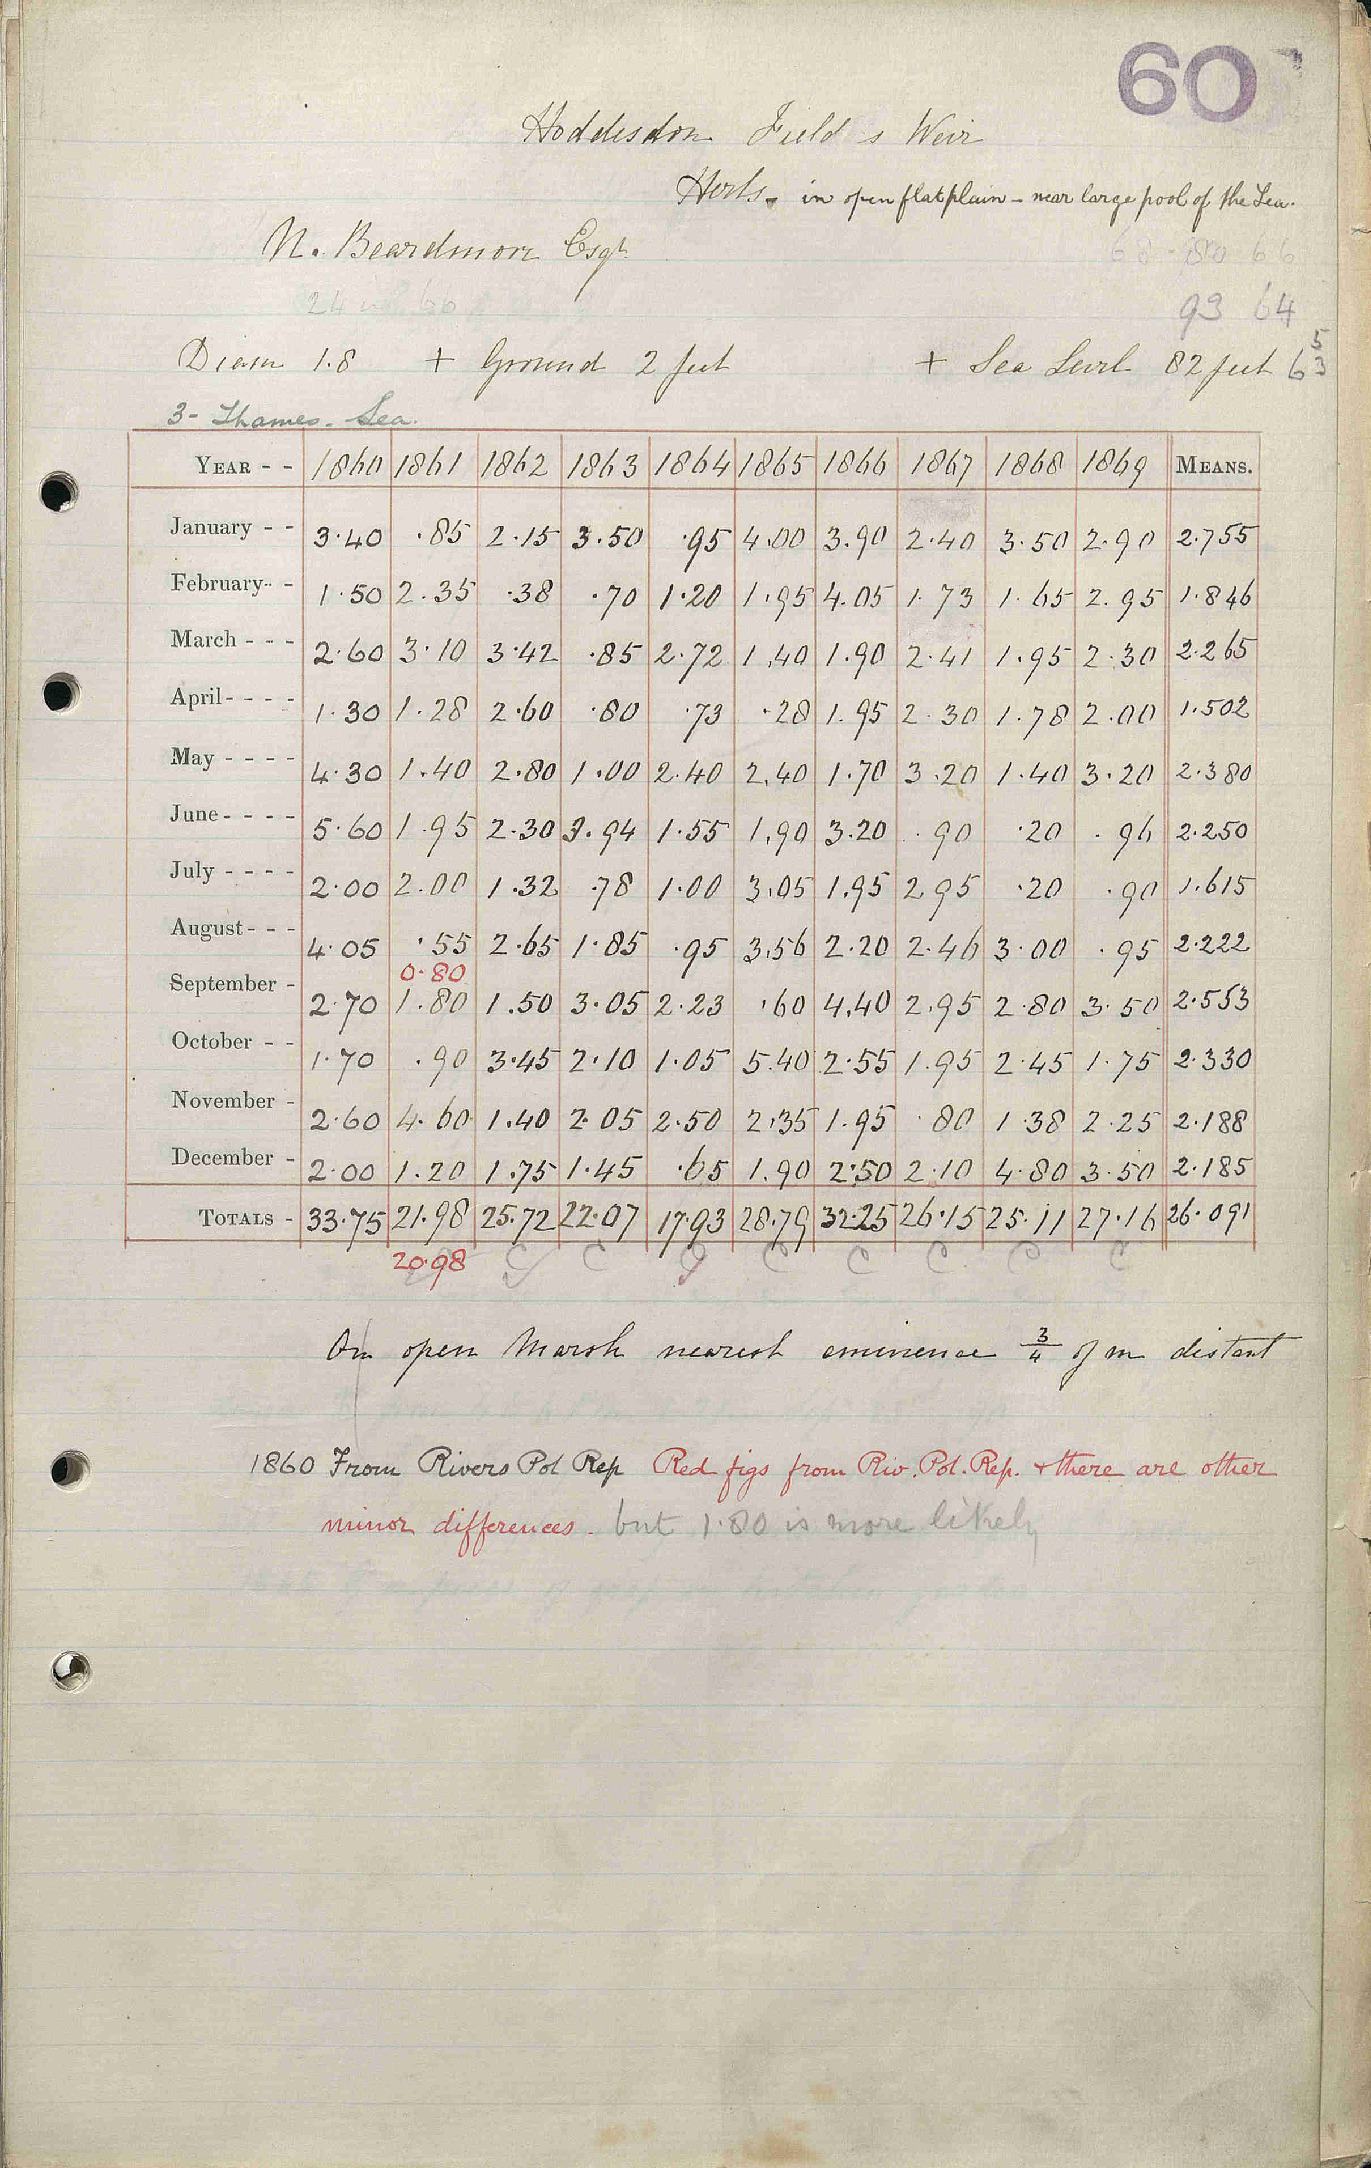 60
Hoddesdon Field's Weir
Herts. in open flat plain - near large pool of the Lea.
N. Beardmore Esqr
93 64
Diam 1.8 + Ground 2 feet + Sea Level 82 feet 6 5 3
3- Thames. Lea.
YEAR - - 1860 1861 1862 1863 1864 1865 1866 1867 1868 1869 MEANS.
January - - 3.40 .85 2.15 3.50 .95 4.00 3.90 2.40 3.50 2.90 2.755
February - - 1.50 2.35 .38 .70 1.20 1.95 4.05 1.73 1.65 2.95 1.846
March - - - 2.60 3.10 3.42 .85 2.72 1.40 1.90 2.41 1.95 2.30 2.265
April - - - - 1.30 1.28 2.60 .80 .73 .28 1.95 2.30 1.78 2.00 1.502
May - - - - 4.30 1.40 2.80 1.00 2.40 2.40 1.70 3.20 1.40 3.20 2.380
June - - - - 5.60 1.95 2.30 3.94 1.55 1.90 3.20 .90 .20 .96 2.250
July - - - - 2.00 2.00 1.32 .78 1.00 3.05 1.95 2.95 .20 .90 1.615
August - - - 4.05 .55 2.65 1.85 .95 3.56 2.20 2.46 3.00 .95 2.222
0.80
September - 2.70 1.80 1.50 3.05 2.23 .60 4.40 2.95 2.80 3.50 2.553
October - - 1.70 .90 3.45 2.10 1.05 5.40 2.55 1.95 2.45 1.75 2.330
November - 2.60 4.60 1.40 2.05 2.50 2.35 1.95 .80 1.38 2.25 2.188
December - 2.00 1.20 1.75 1.45 .65 1.90 2.50 2.10 4.80 3.50 2.185
TOTALS - 33.75 21.98 25.72 22.07 17.93 28.79 32.25 26.15 25.11 27.16 26.091
20.98 C C C C C C C
On open Marsh nearest eminence 3/4 of m distant
1860 From Rivers Pol Rep Red figs from Riv. Pol. Rep. + there are other
minor differences. but 1.80 is more likely